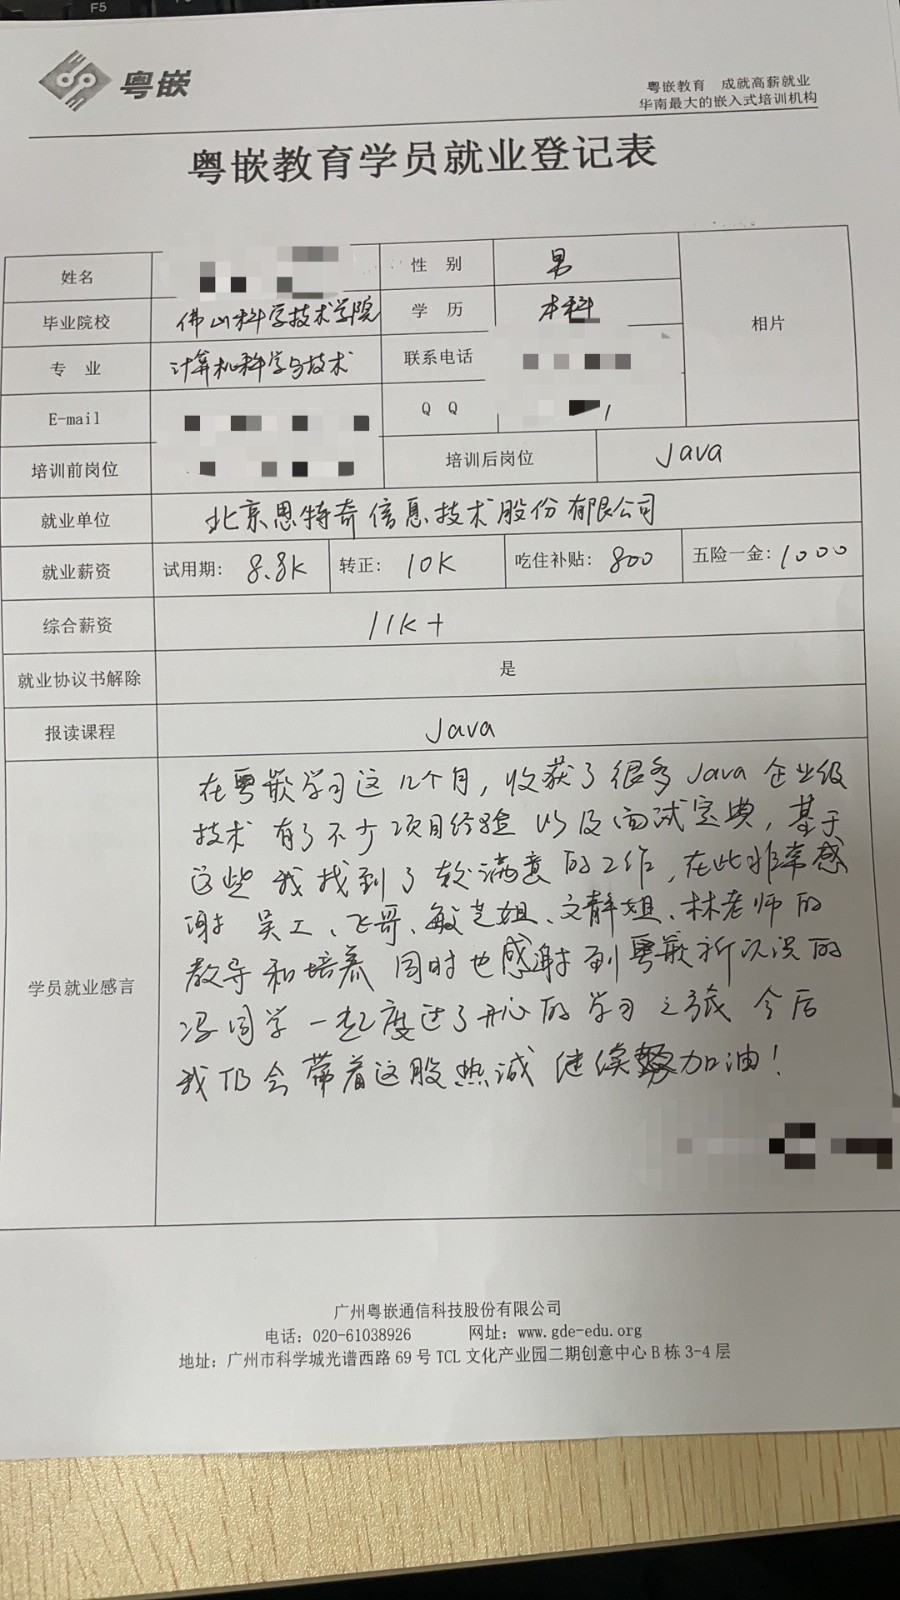 F5
粤嵌
粤嵌教育 成就高薪就业
华南最大的嵌入式培训机构
粤嵌教育学员就业登记表
姓名 性 别 男
毕业院校 佛山科学技术学院 学 历 本科
相片
专 业 计算机科学与技术 联系电话
E-mail Q Q
培训前岗位 培训后岗位 Java
就业单位 北京思特奇信息技术股份有限公司
就业薪资 试用期: 8.8K 转正: 10K 吃住补贴: 800 五险一金: 1000
综合薪资 11K+
就业协议书解除 是
报读课程 Java
学员就业感言
在粤嵌学习这几个月，收获了很多Java企业级
技术 有了不少项目经验 以及面试宝典，基于
这些 我找到了较满意的工作，在此非常感
谢 吴工、飞哥、敏芝姐、文静姐、林老师的
教导和培养 同时也感谢到粤嵌新认识的
冯同学一起度过了开心的学习之旅 今后
我仍会带着这股热诚 继续加油！
广州粤嵌通信科技股份有限公司
电话: 020-61038926 网址: www.gde-edu.org
地址: 广州市科学城光谱西路 69 号 TCL 文化产业园二期创意中心 B 栋 3-4 层